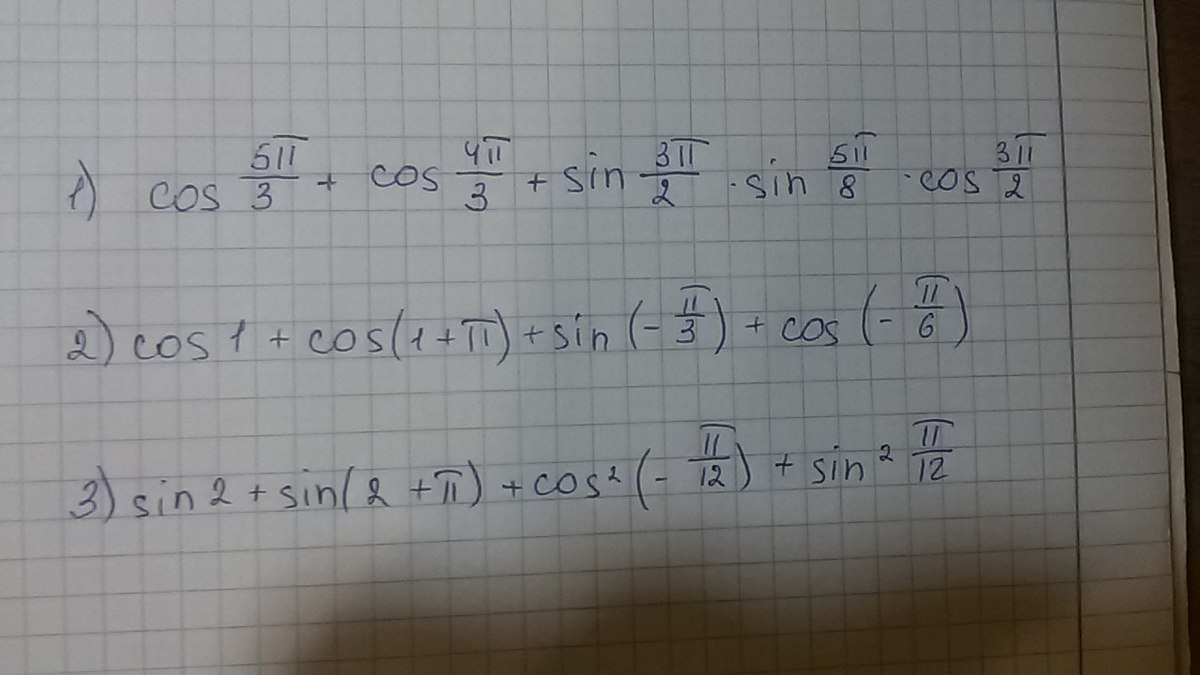 1) cos 5π/3 + cos 4π/3 + sin 3π/2 · sin 5π/8 · cos 3π/2
2) cos 1 + cos(1+π) + sin (- π/3) + cos (- π/6)
3) sin 2 + sin(2 + π) + cos² (- π/12) + sin² π/12